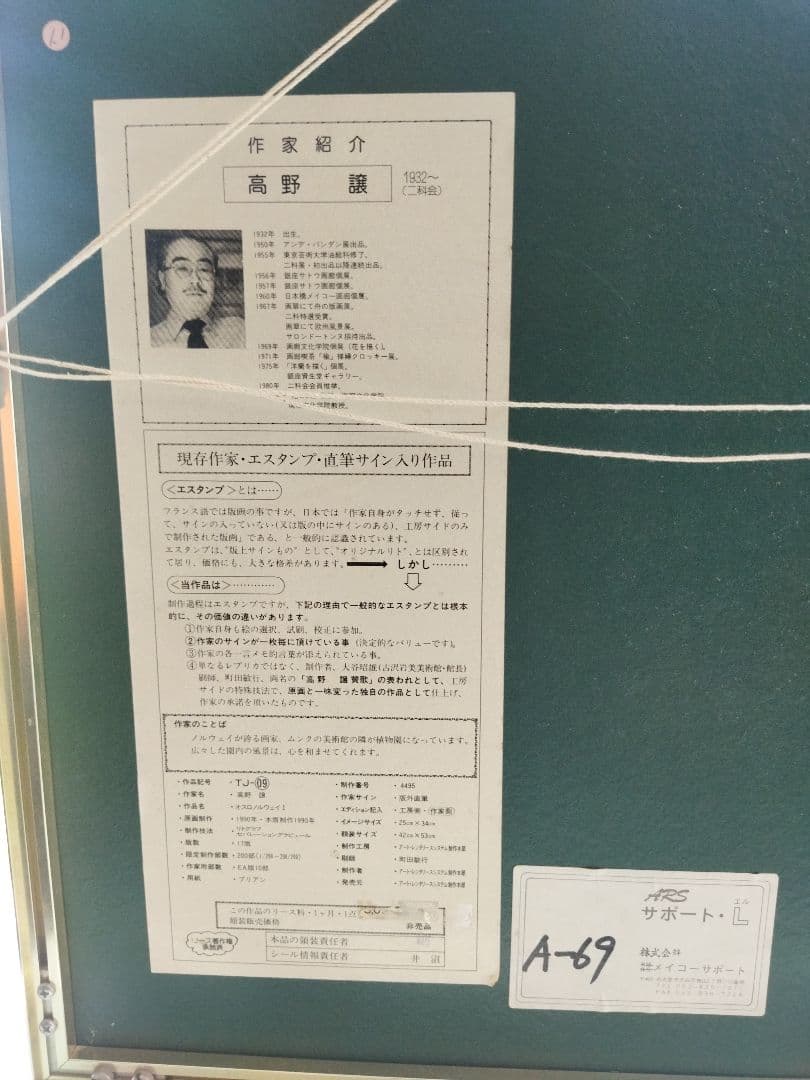 作家紹介
高野 譲
1932〜
(二科会)
1932年 出生。
1950年 アンデ・パンダン展出品。
1955年 東京芸術大学油絵科修了。
二科展・初出品以降連続出品。
1956年 銀座サトウ画廊個展。
1957年 銀座サトウ画廊個展。
1960年 日本橋メイコー画廊個展。
1967年 画草にて舟の版画展。
二科特選受賞。
画草にて欧州風景展。
サロンドートンヌ招待出品。
1969年 画廊文化学院個展(花を描く)。
1971年 画廊喫茶「楡」裸婦クロッキー展。
1975年 「洋蘭を描く」個展。
銀座資生堂ギャラリー。
1980年 二科会会員推挙。
現存作家・エスタンプ・直筆サイン入り作品
<エスタンプ>とは……
フランス語では版画の事ですが、日本では「作家自身がタッチせず、従っ
て、サインの入っていない(又は版の中にサインのある)、工房サイドのみ
で制作された版画」である、と一般的に認識されています。
エスタンプは、"版上サインもの"として、"オリジナルリト"、とは区別され
て居り、価格にも、大きな格差があります。 しかし………
<当作品は>…………
制作過程はエスタンプですが、下記の理由で一般的なエスタンプとは根本
的に、その価値の違いがあります。
①作家自身も絵の選択、試刷、校正に参加。
②作家のサインが一枚毎に頂けている事(決定的なバリューです)。
③作家の各一言メモ的言葉が添えられている事。
④単なるレプリカではなく、制作者、大谷昭雄(古沢岩美美術館・館長)
刷師、町田敏行、両名の「高野 譲賛歌」の表われとして、工房
サイドの特殊技法で、原画と一味変った独自の作品として仕上げ、
作家の承諾を頂いたものです。
作家のことば
ノルウェイが誇る画家、ムンクの美術館の隣が植物園になっています。
広々した園内の風景は、心を和ませてくれます。
・作品記号 ・TJ-09
・作家名 ・高野 譲
・作品名 ・オスロノルウェイI
・原画制作 ・1990年・本版制作1990年
・制作技法 ・リトグラフ
セパレーショングラビュール
・版数 ・17版
・限定制作部数 ・200部
・作家所部数 ・EA版10部
・用紙 ・ブリアン
・制作番号 ・4495
・作家サイン ・版外直筆
・エディション記入 ・工房側・作家側
・イメージサイズ ・25cm×34cm
・額装サイズ ・42cm×53cm
・制作工房 ・アート・レンタリースシステム制作本部
・刷師 ・町田敏行
・制作者 ・アート・レンタリースシステム制作本部
・発売元 ・アート・レンタリースシステム制作本部
この作品のリース料・1ヶ月・1点
額装販売価格 非売品
リース著作権
承諾済
本品の額装責任者
シール情報責任者 井沼
ARS
サポート・L
エル
A-69
株式会社
メイコーサポート